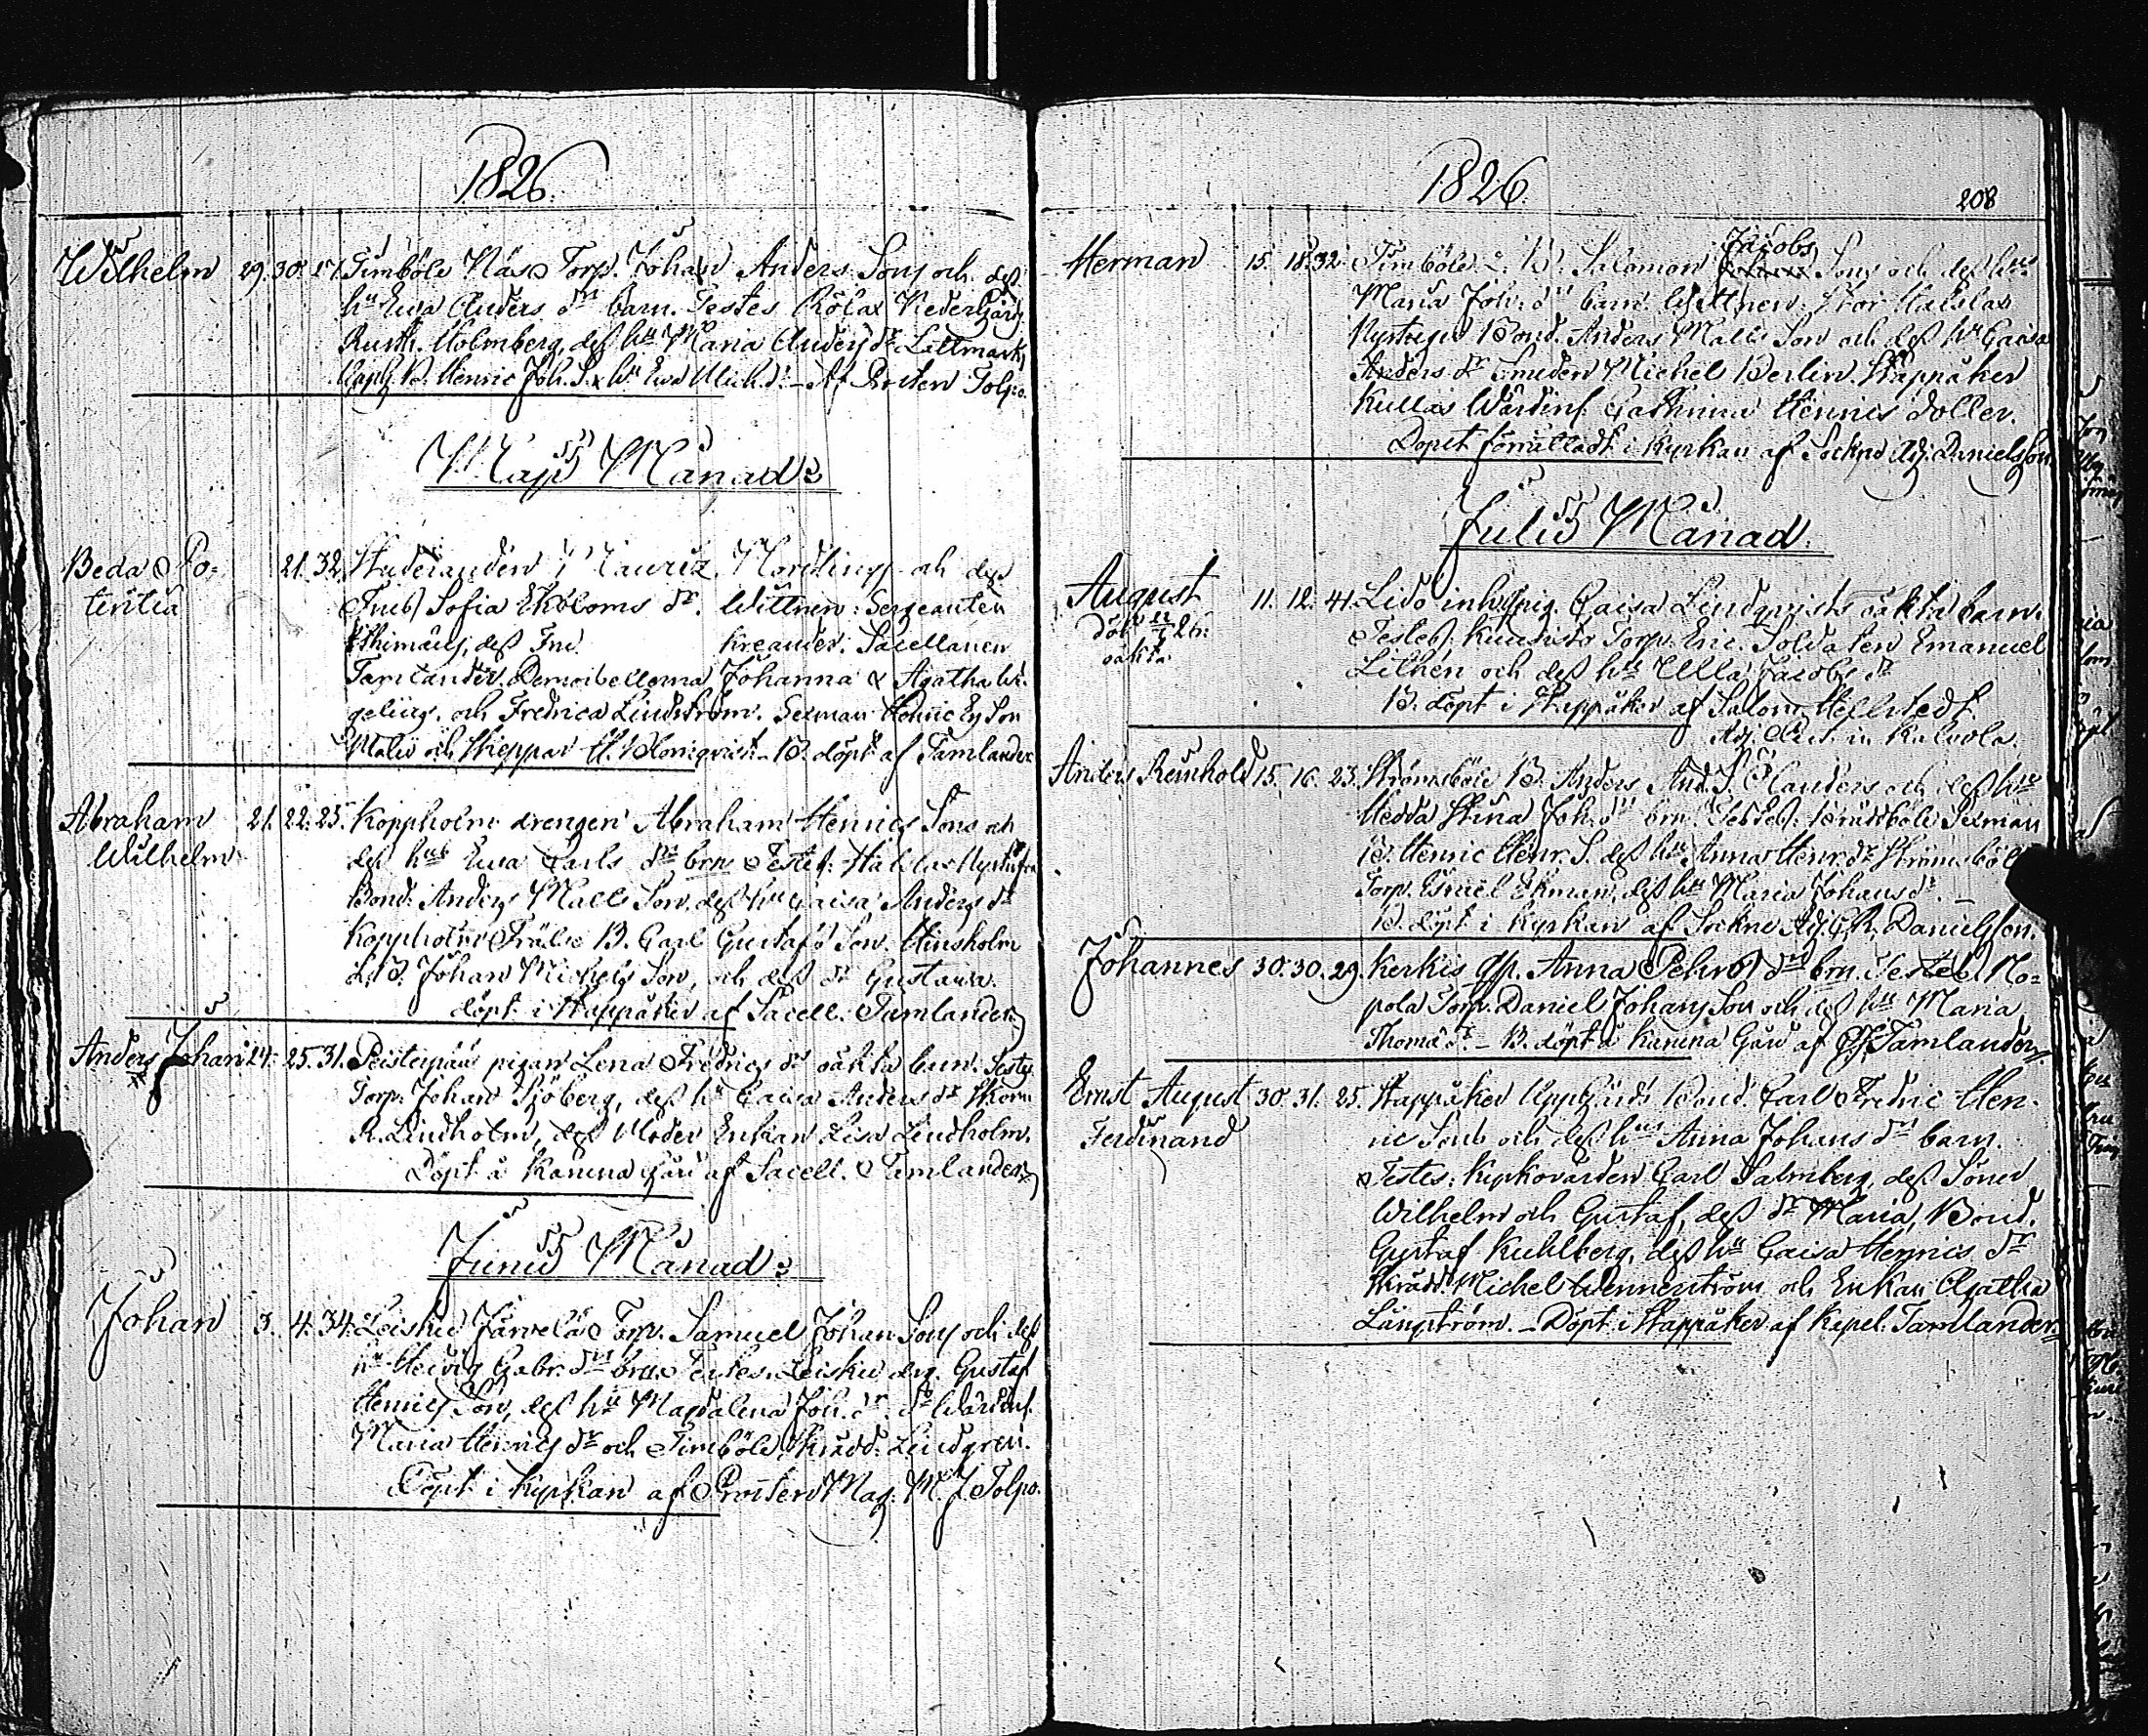 1826.
Wilhelm 29. 30. 27. Fimböle Näse Torp. Johan Anders Sons och dess
hu Ewa Anders drs barn. Testes Rölax Nedergård
Rusth. Holmberg, dess hu Maria Anders dr Lillmark,
B. Henric Joh. S. hu Ewa Mich. dr. – Af Prosten Tolpo.
Maji Månad:
Beda Po- 21. 32. Studeranden Mauritz Nordling och dess
tentia Fru Sofia Ekbloms dr. Wittnen: Sergeanten
Thimæus, dess Fru Kreander. Sacellanen
Tamlander. Demoisellerna Johanna & Agatha We-
gelius, och Fredrica Lindström. Sexman Henric Son
och Skeppar H. Blomqvist – B. döpt af Tamlander
Abraham 21. 22. 25. Koppholm drengen Abraham Henrics Sons och
Wilhelm dess hus Ewa Carls drs brn Testes: Hallslax Nystu
Bond. Anders Matts Son, dess hu Caisa Anders dr
Koppholm Frälse B. Carl Gustafs Son. Hinsholm
L. B. Johan Michels Son, och dess dr Gustawa.
döpt i Kappåker af Sacell. Tamlander
Anders Johan 24. 25. 31. pigan Lena Fredrics drs oäkta barn. Testes
Torp. Johan Sjöberg, dess hu Caisa Anders dr
R. Lindholm, dess Moder Enkan Lisa Lindholm.
Döpt å Kanena Gård af Sacell. Tamlander
Junii Månad:
Johan 3. 4. 34. Leisku Järvelä Torp. Samuel Johan Sons och dess
hu Hedvig Gabr. drs brn. Testes. Leisku drg. Gustaf
Henrics Son, dess hu Magdalena Joh. dr. Do Wärdinf.
Maria Henrics dr och Fimböle Skrädd. Lindgren.
Döpt i Kyrkan af Prosten Mag. M. J. Tolpo.
1826
208
Jacobs
Herman 15. 18. 32. Fimböle L. B. Salomon Johans Sons och dess hus
Maria Joh. drs barn. Wittnen: Stor Hallslax
Nystugu Bond. Anders Matts Son och dess hu Caisa
Anders dr Smeden Michel Berlin. Kappåker
Kullas Wärdinf. Cathrina Henrics dotter.
Dopet förrättadt i Kyrkan af Sockne Adj. Danielsson
Julii Månad.
August 11. 12. 41. Lidö inhysing. Caisa Lindqvists oäkta barn.
död 26.
oäkta
Testes: Torp. Eric. Soldaten Emanuel
Lithén och dess hu Ulla Jacobs dr
B. döpt i Kappåker af Salom. Hellstedt.
Adj. Past. in Kalvola.
Anders Reinhold 15. 16. 23. Strömsböle B. Anders And. S. Clanders och dess hus
Hedda Stina Joh. drs brn. Testes: Sexman
B. Henric Henr. S. dess hu Anna Henr. dr Strömsböle
Torp. Esaiel Ekman, dess hu Maria Johans dr. –
B. döpt i Kyrkan af Sockne Adj. C. R. Danielsson.
Johannes 30. 30. 29. Kerkis Anna Pehrs drs brn. Testes. No-
pola Torp. Daniel Johans Son och dess hu Maria
Thomæ dr. – B. döpt å Kanena Gård af Tamlander
Ernst August 30. 31. 25. Kappåker Uppgårds Bond. Carl Fredric Hen-
Ferdinand rics Sons och dess hus Anna Johans drs barn.
Testes: Kyrkovärden Carl Salmberg, dess Söner
Wilhelm och Gustaf, dess dr Maria, Bond.
Gustaf Kuhlberg, dess hu Caisa Henrics dr
Skrädd. Michel Wennerström och Enkan Agatha
Långström. – Döpt i Kappåker af Kapel. Tamlander